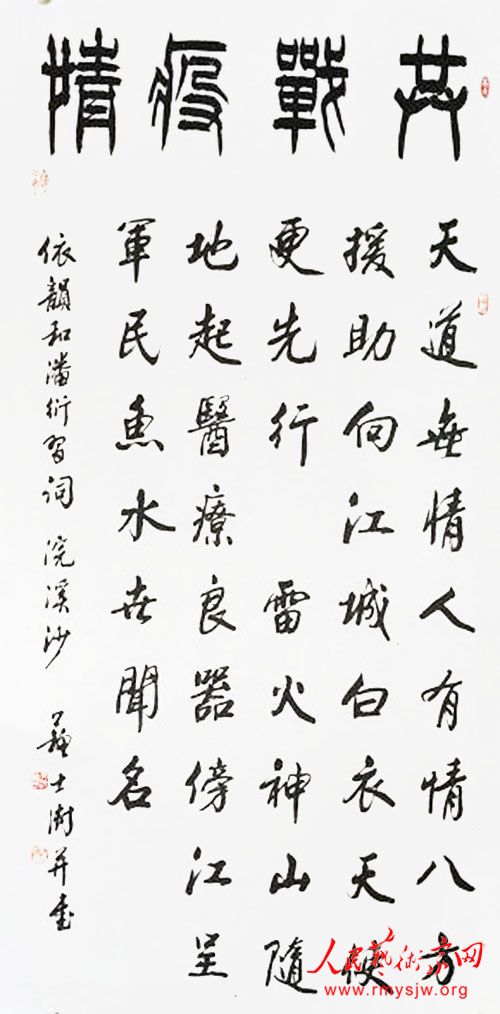 共戰疫情
天道無情人有情八方
援助向江城白衣天使
更先行 雷火神山隨
地起醫療良器傍江呈
軍民魚水世聞名
依韻和潘衍習詞 浣溪沙 蘇士澍并書
人民藝術家网
www.rmysjw.org